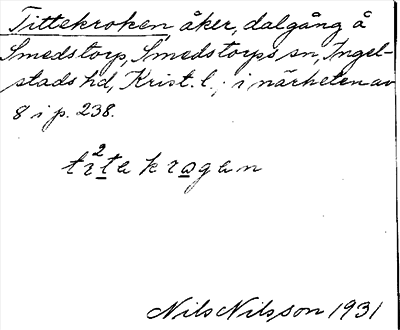 Tittekroken, åker, dalgång å
Smedstorp, Smedstorps sn, Ingel-
stads hd, Krist. l.; i närheten av
8 i p. 238.
ti²tekrogen
Nils Nilsson 1931